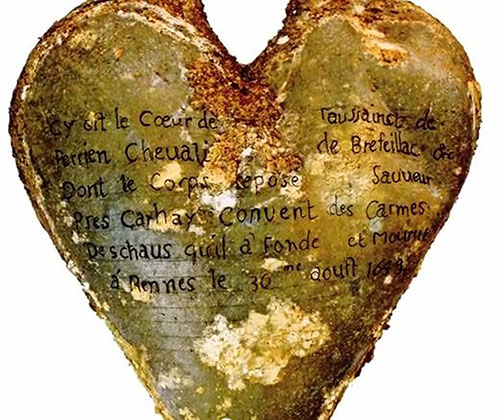 Cy git le Cœur de Toussainctz de
Perrien Chevali de Brefeillac &c
Dont le Corps repose Sauveur
Pres Carhay Convent des Carmes
Deschaus quil a Fonde et Mourut
á Rennes le 30me aoust 1643